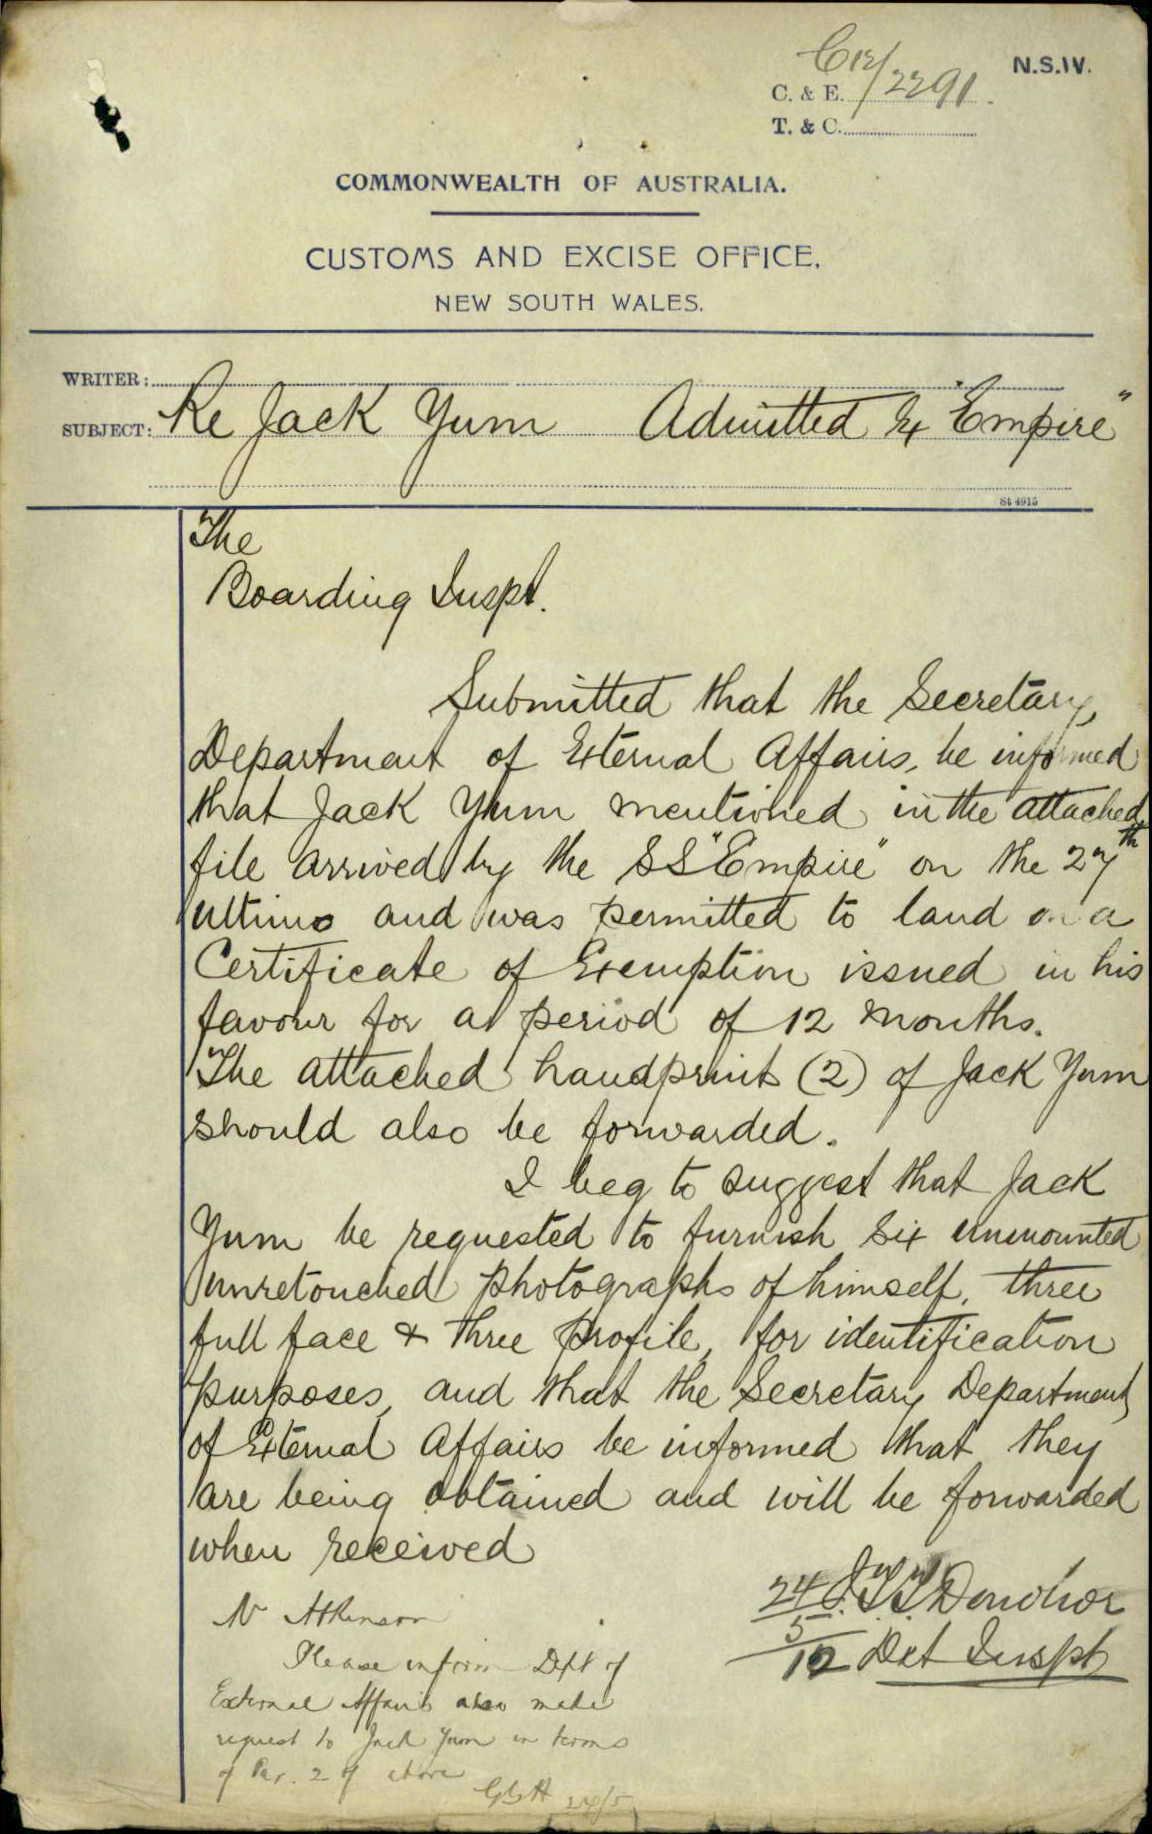 C12/2291
N.S.W.
C. & E.
T. & C.
COMMONWEALTH OF AUSTRALIA.
CUSTOMS AND EXCISE OFFICE,
NEW SOUTH WALES.
WRITER:
SUBJECT: Re Jack Yum Admitted Ex "Empire"
St 4915
The
Boarding Inspt.
Submitted that the Secretary,
Department of External Affairs, be informed
that Jack Yum mentioned in the attached
file arrived by the SS "Empire" on the 27th
ultimo and was permitted to land on a
Certificate of Exemption issued in his
favour for a period of 12 months.
The attached handprints (2) of Jack Yum
should also be forwarded.
I beg to suggest that Jack
Yum be requested to furnish six unmounted
unretouched photographs of himself, three
full face & three profile, for identification
purposes, and that the Secretary Department
of External Affairs be informed that they
are being obtained and will be forwarded
when received
24/5/12 Donohoe
Det Inspt
Mr Atkinson
Please inform Dept of
External Affairs also make
request to Jack Yum in terms
of Par. 2 of above
24/5